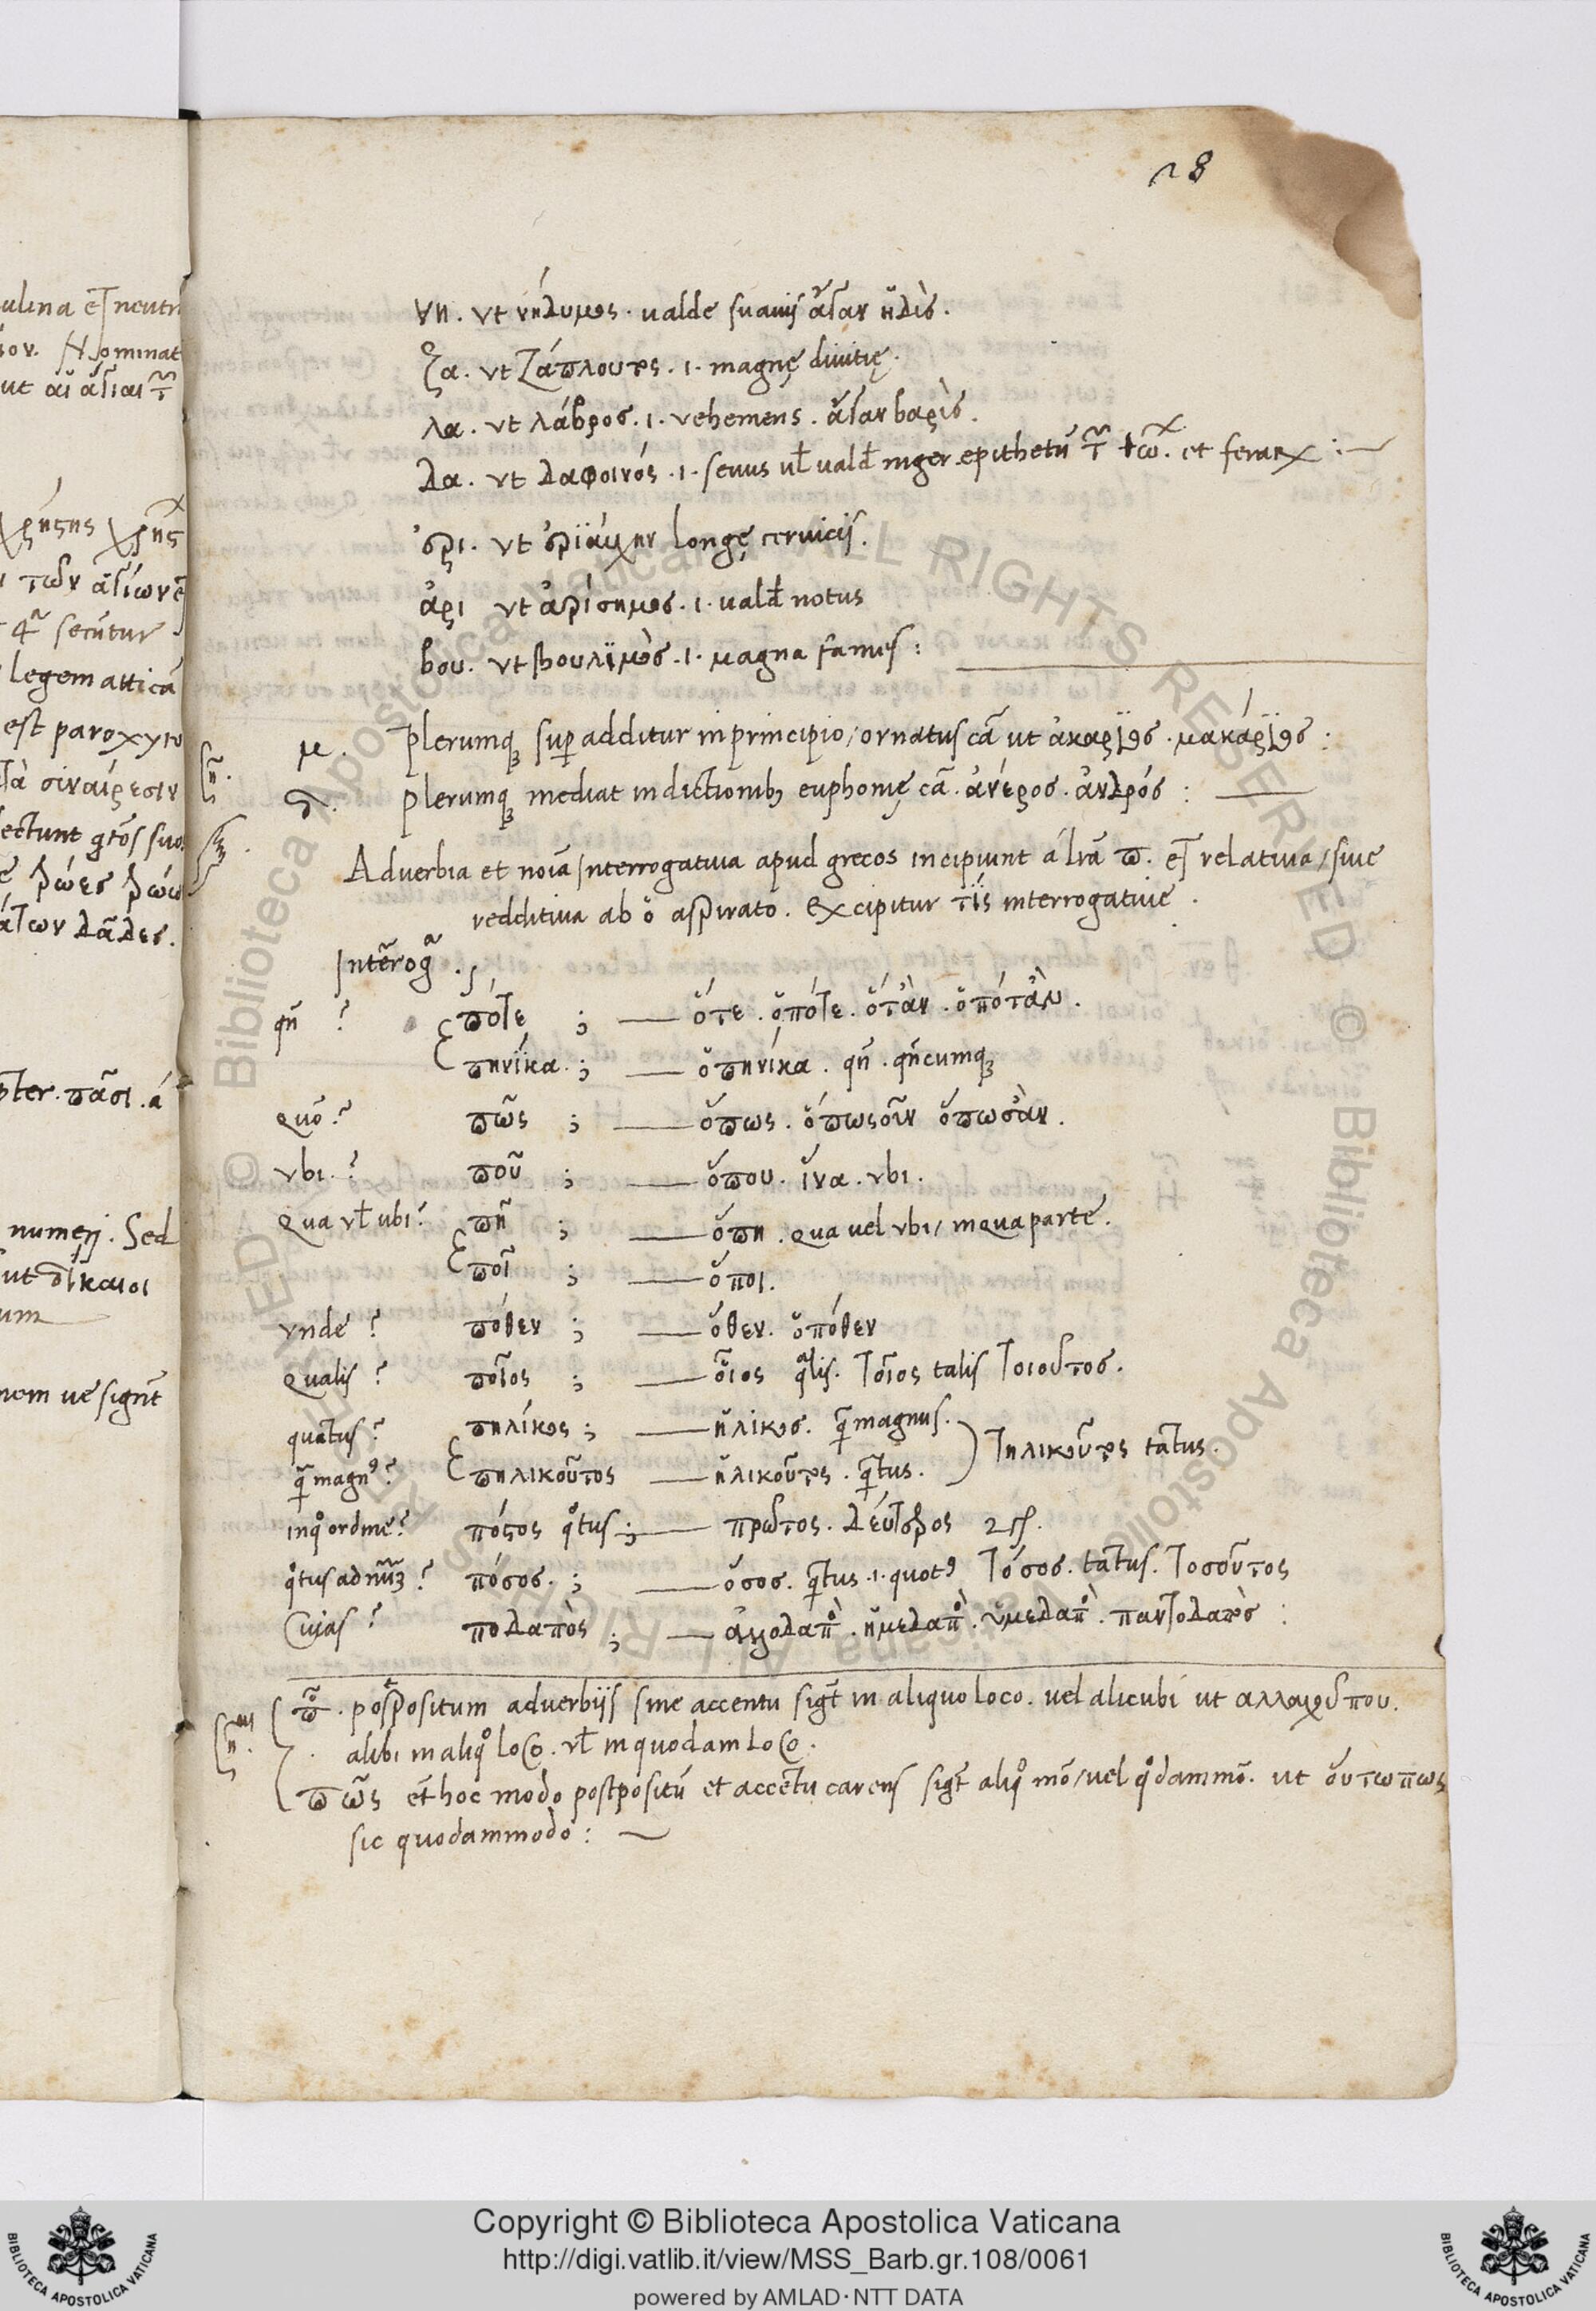 28
νη. ut νήδυμος. ualde suauis ἄγαν ἡδὺς.
ζα. ut Ζάπλουτος. i. magnę diuitię.
λα. ut λάβρος. i. vehemens. ἄγαν βαρὺς.
δα. ut δαφοινός. i. seuus ul ualđ niger epithetū et ferarx :—
ἐρι. ut ἐριάυχην longę ceruicis.
ἀρι ut ἀρίσημος. i. ualđ notus
βου. ut βουλϊμὸς. i. magna fames :
μ. plerumqȝ superadditur in principio / ornatus cā ut ἀκαρϊος. μακάρϊος :
δ. plerumqȝ mediat in dictionibȝ euphonię cā. ἀνέρος. ἀνδρός :
Aduerbia et noīa Interrogatiua apud grecos incipiunt á lrā ϖ. et relatiua / siue
redditiua ab ὁ aspirato. excipitur τϊς interrogatiue.
Interrogā.
qn̄ ? πότε ; — ὅτε. ὁπότε. ὅτὰν. ὁπότὰν.
πηνίκα. ; — ὁπηνίκα. qn̄. qn̄cumqȝ
Quō ? πῶς ; — ὅπως. ὅπωςοῦν ὅπωσὰν.
vbi. ? ποῦ ; — ὅπου. ἵνα. vbi.
Qua ul ubi ? πῆ ; — ὅπη. Qua uel vbi / in qua parte.
ποῖ ; — ὅποι.
vnde ? πόθεν ; — ὅθεν. ὁπόθεν
Qualis ? ποῖος ; — οἷος qalis. τοῖος talis τοιοῦτος.
quātus ? πηλίκος ; — ἡλίκος. qā magnus.
qā magn⁹ ? πηλικοῦτος — ἡλικοῦτος. qātus. ) τηλικοῦτος tātus.
in qo ordine ? πόςος qotus ; — πρῶτος. δεύτερος
qotus ad nūȝ ? πόσος. ; — ὅσος. qātus. i. quot⁹ τόσος. tātus. τοσοῦτος
Cuias ? ποδαπὸς ; — ἀλλοδαπὸ. ἡμεδαπὸ. ὑμεδαπὸ. παντοδαπὸς :
ποῦ. postpositum aduerbijs sine accentu sigt̄ in aliquo loco. uel alicubi ut αλλαχοῦ που.
alibi in aliqo loco. ul in quodam loco.
πῶς et̄ hoc modo postpositū et accentu carens sigt̄ aliqo mō / uel qodammō. ut ὅυτω πως
sic quodammodo : —
Copyright © Biblioteca Apostolica Vaticana
http://digi.vatlib.it/view/MSS_Barb.gr.108/0061
powered by AMLAD·NTT DATA
BIBLIOTECA APOSTOLICA VATICANA
BIBLIOTECA APOSTOLICA VATICANA